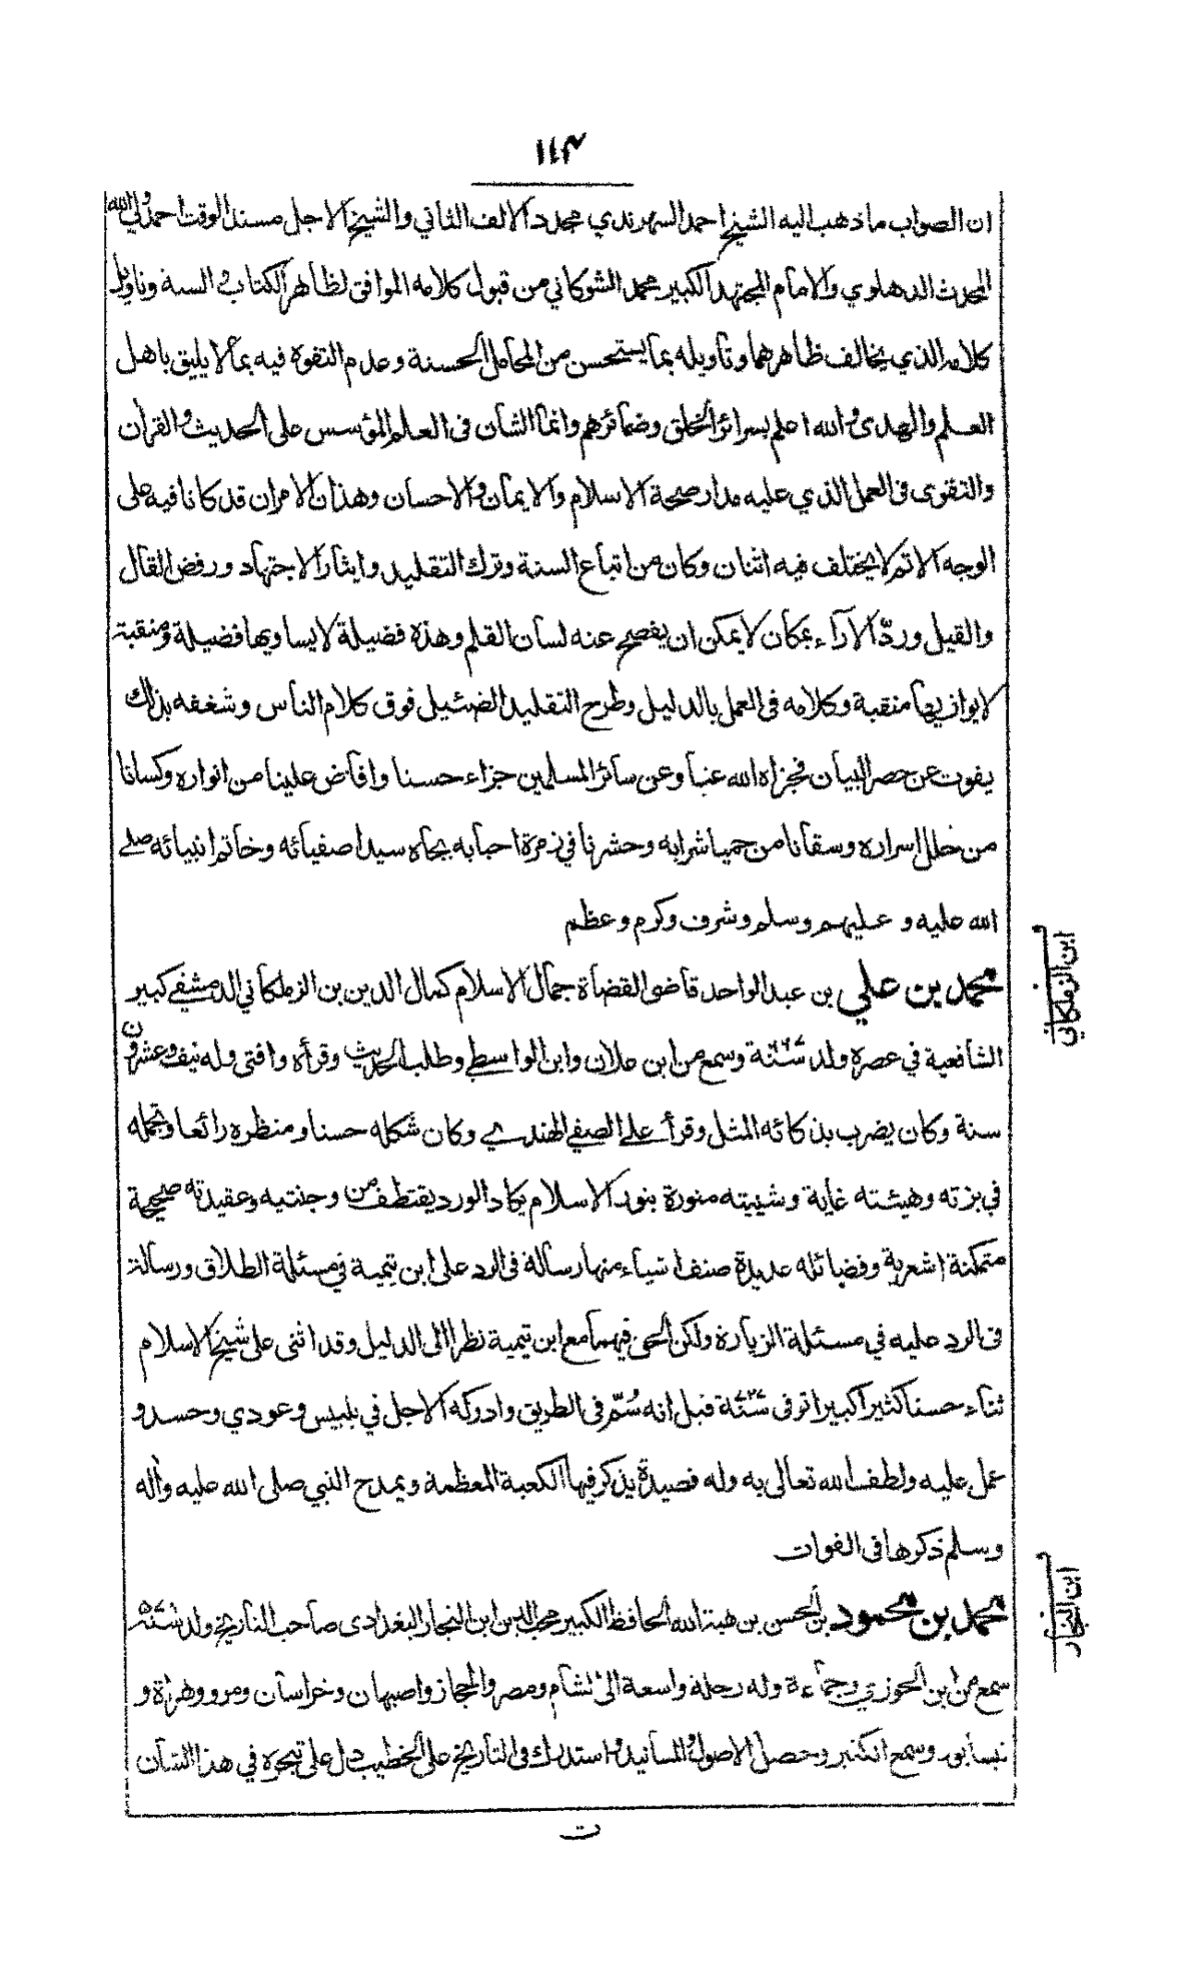 ١١٤٣
ان الصواب ما ذهب اليه الشيخ احمد السهرندي مجدد الالف الثاني والشيخ الاجل مسند الوقت احمد ولي الله
المحدث الدهلوي والامام المجتهد الكبير محمد الشوكاني من قبول كلامه الموافق لظاهر الكتاب و السنة وتاويل
كلامه الذي يخالف ظاهرهما وتأويله بما يستحسن من المحامل الحسنة وعدم التفوه فيه بما لا يليق باهل
العلم والهدى والله اعلم بسرائر الخلق وضمائرهم وانما الشان فى العلم المؤسس على الحديث والقرأن
والتقوى فى العمل الذي عليه مدار صحة الاسلام والايمان والاحسان وهذان الامران قد كانا فيه على
الوجه الاتم لا يختلف فيه اثنان وكان من اتباع السنة وترك التقليد وايثار الاجتهاد ورفض القال
والقيل وردّ الاراء بمكان لا يمكن ان يفصح عنه لسان القلم وهذه فضيلة لا يساويها فضيلة ومنقبة
لا يوازيها منقبة وكلامه فى العمل بالدليل وطرح التقليد الضئيل فوق كلام الناس وشغفه بذلك
يفوت عن حصر البيان فجزاه الله عنا وعن سائر المسلمين جزاء حسنا وافاض علينا من انواره وكسانا
من حلل اسراره وسقانا من حميا شرابه وحشرنا في زمرة احبابه بجاه سيد اصفيائه وخاتم انبيائه صلى
الله عليه و عليهم وسلم وشرف وكرم وعظم
ابن الزملكاني
محمد بن علي بن عبد الواحد قاضى القضاة جمال الاسلام كمال الدين بن الزملكاني الدمشقي كبير
الشافعية في عصره ولد سنة ٦٦٧ وسمع من ابن علان وابن الواسطي وطلب الحديث وقرأه وافتى وله نيف وعشرون
سنة وكان يضرب بذكائه المثل وقرأ على الصفي الهندي وكان شكله حسنا ومنظره رائعا وتجمله
في بزته وهيئته غاية وشيبته منورة بنور الاسلام يكاد الورد يقتطف من وجنتيه وعقيدته صحيحة
متمكنة اشعرية وفضائله عديدة صنف اشياء منها رسالة فى الرد على ابن تيمية في مسئلة الطلاق ورسالة
فى الرد عليه في مسئلة الزيارة ولكن الحق فيهما مع ابن تيمية نظرا الى الدليل وقد اثنى على شيخ الاسلام
ثناء حسنا كثيرا كبيرا توفى سنة ٧٢٧ قيل انه سُمّ فى الطريق وادركه الاجل في بلبيس وعودي وحسد و
عمل عليه ولطف الله تعالى به وله قصيدة يذكر فيها الكعبة المعظمة ويمدح النبي صلى الله عليه واله
وسلم ذكرها فى الفوات
ابن النجار
محمد بن محمود بن الحسن بن هبة الله الحافظ الكبير محب الدين ابن النجار البغدادى صاحب التاريخ ولد سنة ٥٧٨
سمع من ابن الجوزي وجماعة وله رحلة واسعة الى الشام ومصر والحجاز واصبهان وخراسان ومرو وهراة و
نيسابور وسمع الكثير وحصل الاصول والمسانيد واستدرك فى التاريخ على الخطيب دل على تبحره في هذا الشان
ت